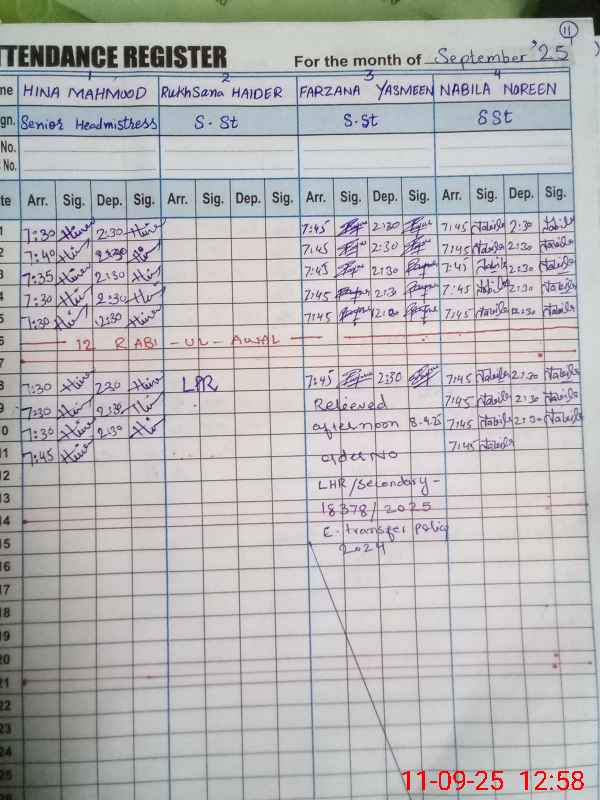 11
TTENDANCE REGISTER For the month of September '25
1 2 3 4
me HINA MAHMOOD RukhSana HAIDER FARZANA YASMEEN NABILA NOREEN
gn. Senior Headmistress S. St S. St SSt
No.
No.
te Arr. Sig. Dep. Sig. Arr. Sig. Dep. Sig. Arr. Sig. Dep. Sig. Arr. Sig. Dep. Sig.
1 7:30 Hina 2:30 Hina 7:45 2:30 7:45 Nabila 2:30 Nabila
2 7:40 Hina 7:45 2:30 7:45 Nabila 2:30 Nabila
3 7:35 Hina 2:30 7:45 2:30 7:45 Nabila 2:30 Nabila
4 7:30 2:30 7:45 2:30 7:45 Nabila 2:30 Nabila
5 7:30 12:30 7:45 7:45 Nabila 12:30 Nabila
6 12 RABI - UL - AWAL
7
8 7:30 Hina 2:30 Hina LPR 7:45 2:30 7:45 Nabila 2:30 Nabila
9 7:30 Hina 2:30 Relieved 7:45 Nabila 2:30 Nabila
10 7:30 Hina 2:30 afternoon 8.9.25 7:45 Nabila 2:30 Nabila
11 7:45 Hina order No 7:45 Nabila
12 LHR/Secondary -
13 18378/2025
14 E-transfer policy
15 2024
16
17
18
19
20
21
22
23
24
25
11-09-25 12:58